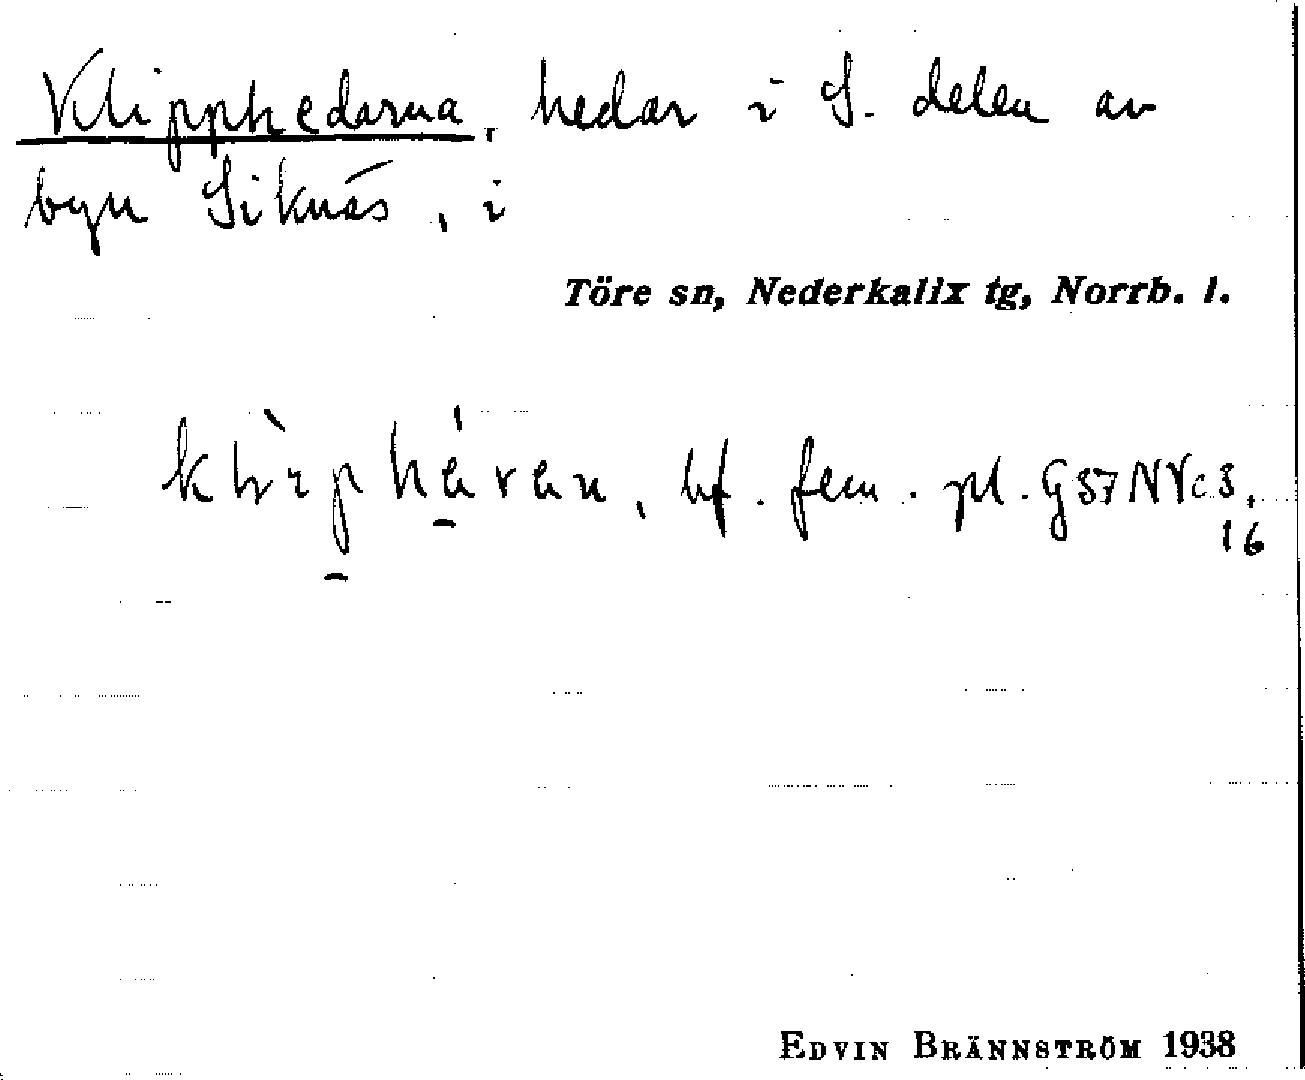 Klipphedarna, hedar i S. delen av
byn Siknäs, i
Töre sn, Nederkalix tg, Norrb. l.
hf. fem. pl. G 57 NVc 3,
16
EDVIN BRÄNNSTRÖM 1938